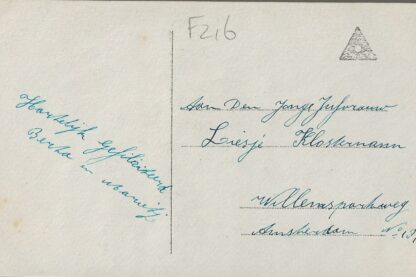 F216
Hartelijk Gefeliciteerd
Berta en
Aan Den Jonge Jufvrouw
Liesje Klostermann
Willemsparkweg
Amsterdam No